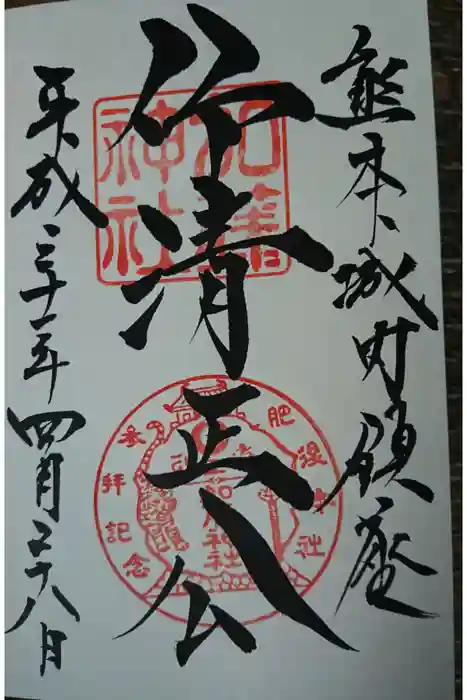 熊本城内鎮座
仰清正公
平成三十一年四月二十八日
加藤
神社
参拝記念
加藤神社